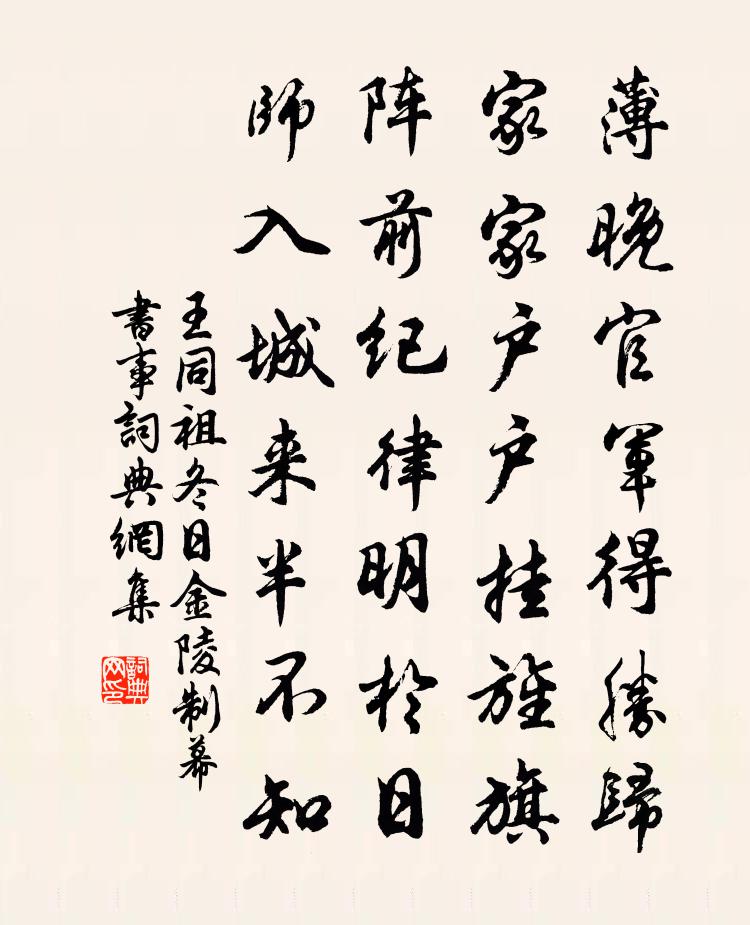 薄晚官軍得勝歸
家家户户挂旌旗
阵前纪律明於日
師入城来半不知
王同祖冬日金陵制幕
書事詞典網集
詞典网印